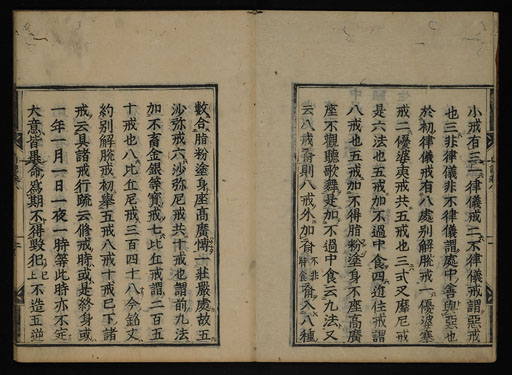 小戒有三一律儀戒二不律儀戒謂惡戒
也三非律儀非不律儀謂處中善與惡也
於初律儀戒有八處別解脫戒一優婆塞
戒二優婆夷戒共五戒也三式叉摩尼戒
是六法也五戒加不過中食四近住戒謂
八戒也五戒加不得脂粉塗身不座高廣
座不觀聽歌舞是加不過中食云九法又
云八戒齋則八戒外加齋不非時食齋入八種
數合脂粉塗身座高廣博一莊嚴處故五
沙弥戒六沙弥尼戒共十戒也謂前九法
加不畜金銀等寶戒七比丘戒謂二百五
十戒也八比丘尼戒三百四十八今銘文
約別解脫戒初擧五戒八戒十戒已下諸
戒云具諸戒行疏云修戒時或是終身或
一年一月一日一夜一時等此時亦不定
大意皆畢命爲期不得毀犯上已不造五逆